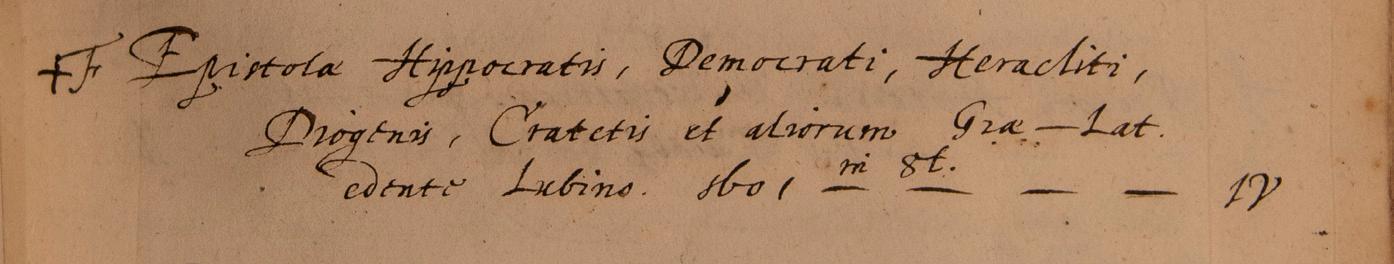 +F Epistolæ Hippocratis, Democrati, Heracliti,
Diogenis, Cratetis et aliorum Græ-Lat.
edente Lubino. in 8t. — — — — IV